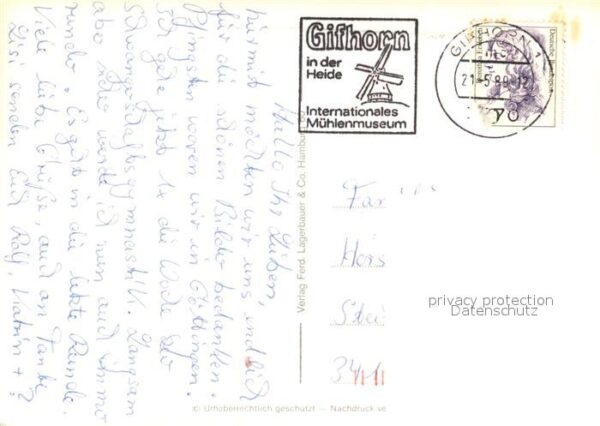 Gifhorn
in der
Heide
Internationales
Mühlenmuseum
GIFHORN 1
21.-5.89.-12
Deutsche Bundespost
70
Hallo Ihr Lieben,
hiermit möchten wir uns endlich
für die schönen Bilder bedanken.
Pfingsten waren wir in Göttingen.
Ich gehe jetzt 1x die Woche zur
Schwangerschaftsgymnastik. Langsam
aber sicher werde ich nun auch immer
runder. Es geht in die letzte Runde.
Viele liebe Grüße, auch an Tante
Lisi senden Euch Rolf, Katrin + ?
Verlag Ferd. Lagerbauer & Co. Hamburg
Fam
Hors
Stei
34
privacy protection
Datenschutz
© Urheberrechtlich geschützt — Nachdruck ve